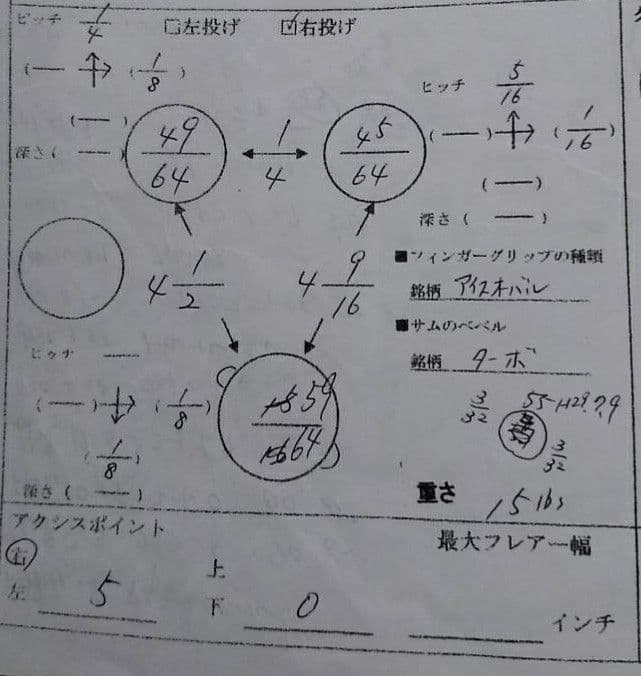 ピッチ 1/4 □左投げ ☑右投げ
(—) (1/8)
(—)
深さ(—)
49/64 1/4 45/64
ピッチ 5/16
(—) (1/16)
(—)
深さ(—)
4 1/2 4 9/16
■フィンガーグリップの種類
銘柄 アイスオバル
■サムのベベル
銘柄 ターボ
ピッチ —
(—) (1/8)
(1/8)
深さ(—)
59/64
3/32
3/32
重さ 15 lbs
アクシスポイント 最大フレアー幅
右 上
左 5 下 0 インチ